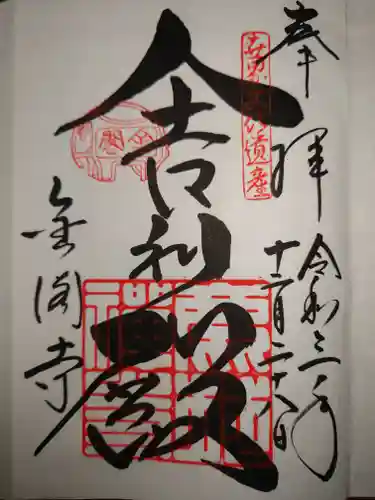 奉拝
令和三年
十二月二十八日
世界文化遺産
舎利殿
金閣寺